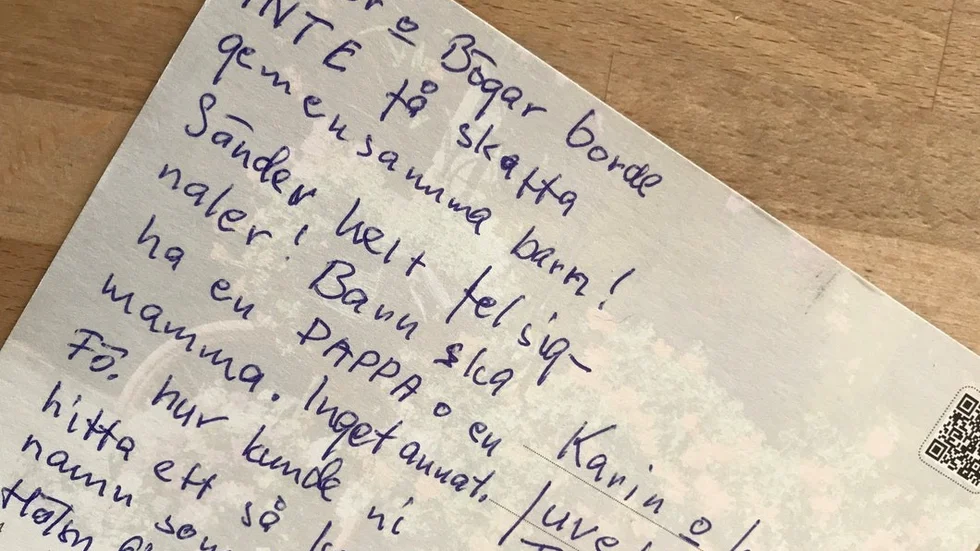 o Bögar borde
INTE få skaffa
gemensamma barn!
Sänder helt fel sig-
naler! Barn ska
ha en PAPPA o en
mamma. Inget annat.
Fö. hur kunde ni
hitta ett så
namn som
Karin o